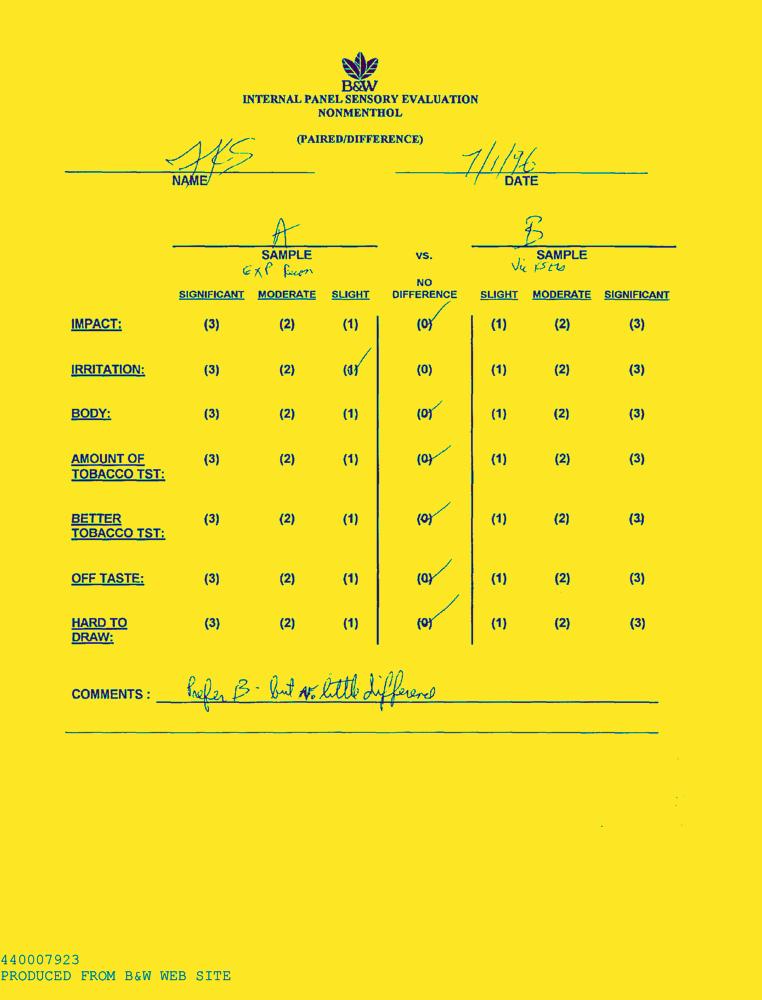 B&W
INTERNAL PANEL SENSORY EVALUATION
NONMENTHOL
(PAIRED/DIFFERENCE)
7/1/96
NAME DATE
A B
SAMPLE vs. SAMPLE
EXP
NO
SIGNIFICANT MODERATE SLIGHT DIFFERENCE SLIGHT MODERATE SIGNIFICANT
IMPACT: (3) (2) (1) (0) (1) (2) (3)
IRRITATION: (3) (2) (1) (0) (1) (2) (3)
BODY: (3) (2) (1) (0) (1) (2) (3)
AMOUNT OF (3) (2) (1) (0) (1) (2) (3)
TOBACCO TST:
BETTER (3) (2) (1) (0) (1) (2) (3)
TOBACCO TST:
OFF TASTE: (3) (2) (1) (0) (1) (2) (3)
HARD TO (3) (2) (1) (0) (1) (2) (3)
DRAW:
COMMENTS : Prefer B - but little difference
440007923
PRODUCED FROM B&W WEB SITE